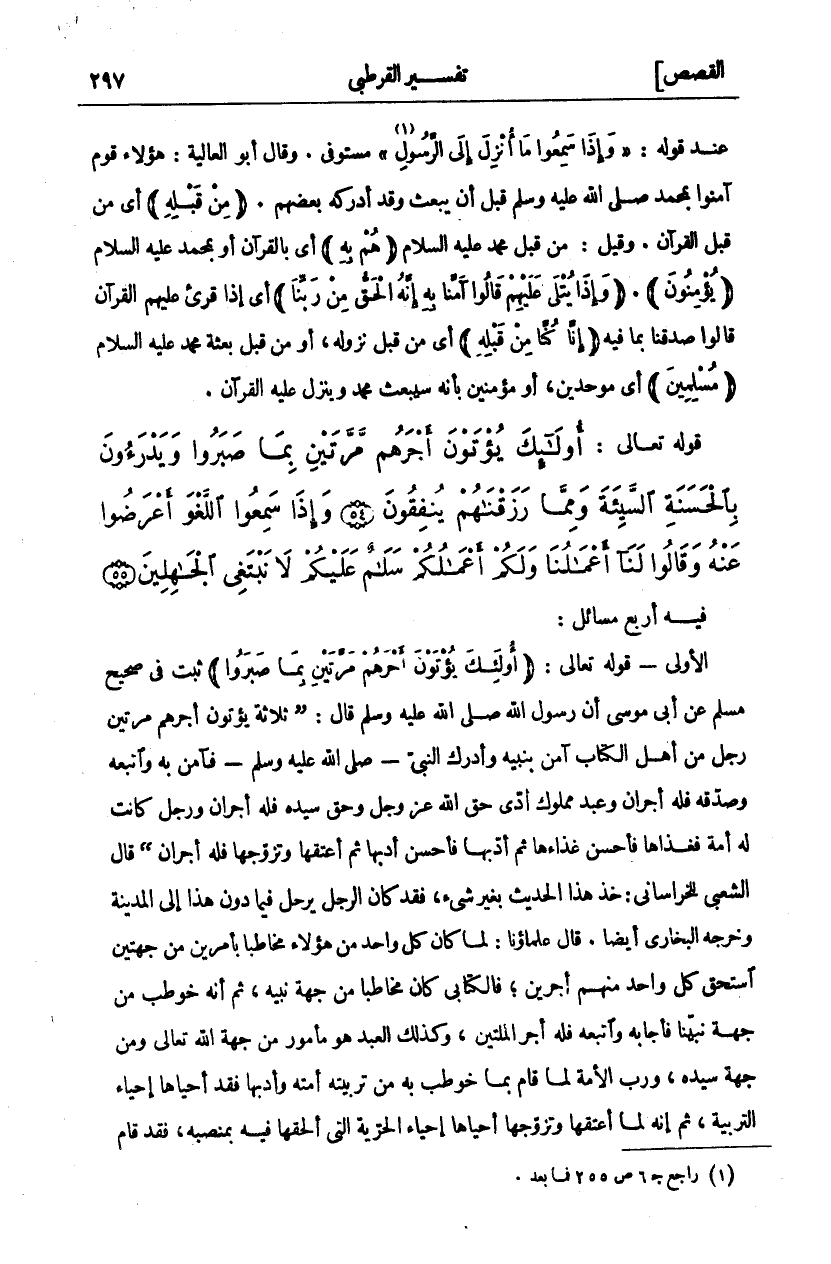 القصص] تفسير القرطبي ٢٩٧
عند قوله : « وَإِذَا سَمِعُوا مَا أُنْزِلَ إِلَى الرَّسُولِ (١) » مستوفى . وقال أبو العالية : هؤلاء قوم
آمنوا بمحمد صلى الله عليه وسلم قبل أن يبعث وقد أدركه بعضهم . ﴿ مِنْ قَبْلِهِ ﴾ أى من
قبل القرآن . وقيل : من قبل محمد عليه السلام ﴿ هُمْ بِهِ ﴾ أى بالقرآن أو بمحمد عليه السلام
﴿ يُؤْمِنُونَ ﴾ . ﴿ وَإِذَا يُتْلَى عَلَيْهِمْ قَالُوا آمَنَّا بِهِ إِنَّهُ الْحَقُّ مِنْ رَبِّنَا ﴾ أى إذا قرئ عليهم القرآن
قالوا صدقنا بما فيه ﴿ إِنَّا كُنَّا مِنْ قَبْلِهِ ﴾ أى من قبل نزوله، أو من قبل بعثة محمد عليه السلام
﴿ مُسْلِمِينَ ﴾ أى موحدين، أو مؤمنين بأنه سيبعث محمد وينزل عليه القرآن .
قوله تعالى : أُولَٰٓئِكَ يُؤْتَوْنَ أَجْرَهُم مَّرَّتَيْنِ بِمَا صَبَرُوا وَيَدْرَءُونَ
بِٱلْحَسَنَةِ ٱلسَّيِّئَةَ وَمِمَّا رَزَقْنَٰهُمْ يُنفِقُونَ ٥٤ وَإِذَا سَمِعُوا ٱللَّغْوَ أَعْرَضُوا
عَنْهُ وَقَالُوا لَنَآ أَعْمَٰلُنَا وَلَكُمْ أَعْمَٰلُكُمْ سَلَٰمٌ عَلَيْكُمْ لَا نَبْتَغِى ٱلْجَٰهِلِينَ ٥٥
فيه أربع مسائل :
الأولى — قوله تعالى : ﴿ أُولَئِكَ يُؤْتَوْنَ أَجْرَهُمْ مَرَّتَيْنِ بِمَا صَبَرُوا ﴾ ثبت فى صحيح
مسلم عن أبى موسى أن رسول الله صلى الله عليه وسلم قال : " ثلاثة يؤتون أجرهم مرتين
رجل من أهل الكتاب آمن بنبيه وأدرك النبيّ — صلى الله عليه وسلم — فآمن به وآتبعه
وصدّقه فله أجران وعبد مملوك أدّى حق الله عز وجل وحق سيده فله أجران ورجل كانت
له أمة فغذاها فأحسن غذاءها ثم أدّبها فأحسن أدبها ثم أعتقها وتزوّجها فله أجران " قال
الشعبي للخراساني : خذ هذا الحديث بغير شىء، فقد كان الرجل يرحل فيما دون هذا إلى المدينة
وخرجه البخارى أيضا . قال علماؤنا : لما كان كل واحد من هؤلاء مخاطبا بأمرين من جهتين
آستحق كل واحد منهم أجرين ؛ فالكتابى كان مخاطبا من جهة نبيه ، ثم أنه خوطب من
جهة نبيّنا فأجابه وآتبعه فله أجر الملتين ، وكذلك العبد هو مأمور من جهة الله تعالى ومن
جهة سيده ، ورب الأمة لما قام بما خوطب به من تربيته أمته وأدبها فقد أحياها إحياء
التربية ، ثم إنه لما أعتقها وتزوّجها أحياها إحياء الحرّية التى ألحقها فيه بمنصبه ، فقد قام
(١) راجع جـ ٦ ص ٢٥٥ فما بعد .